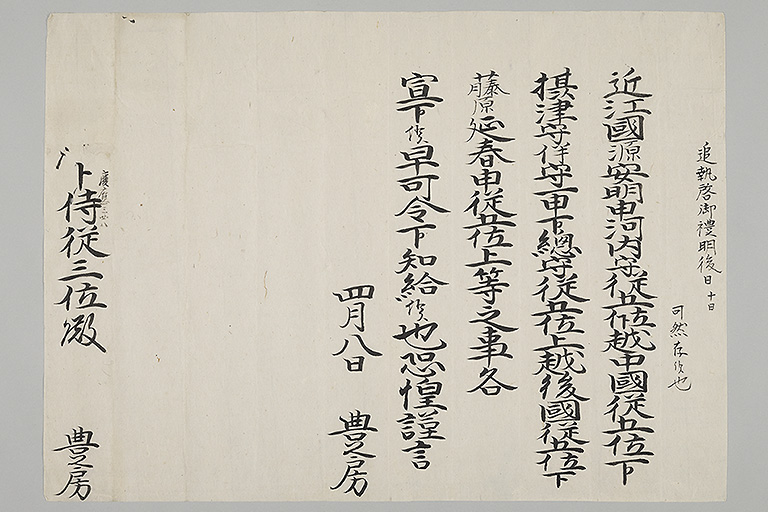 追執啓御禮明後日十日
可然存候也
近江國源安明申河内守従五位越中國従五位下
摂津守伴守一申下總守従五位上越後國従五位下
藤原延春申従五位上等之事各
宣下候早可令下知給候也恐惶謹言
四月八日 豊房
卜侍従三位殿
豊房